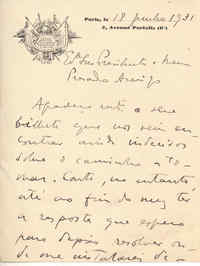 Paris, le 18 junho 1931
5, Avenue Portalis (8e)
Exmo Sr. Presidente e meu
Prezado Amigo
Agradeço muito o seu
bilhete que nos veio en-
contrar ainda indecisos
sobre o caminho a to-
mar. Conto, no entanto
até ao fim do mez ter
a resposta que espero
para depois resolver on-
de me instalarei de-